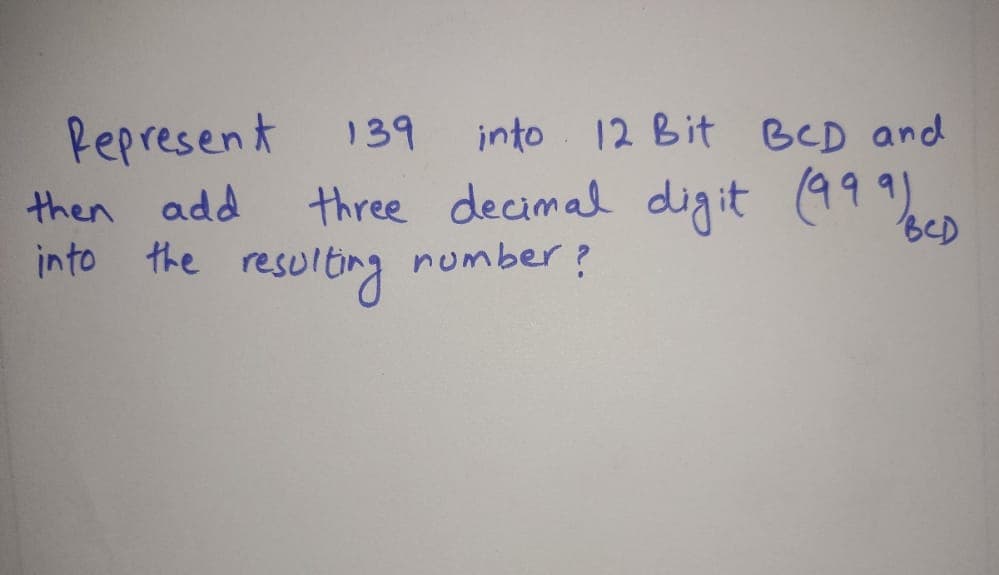 Represent 139 into 12 Bit BCD and
then add three decimal digit (999)BCD
into the resulting number?